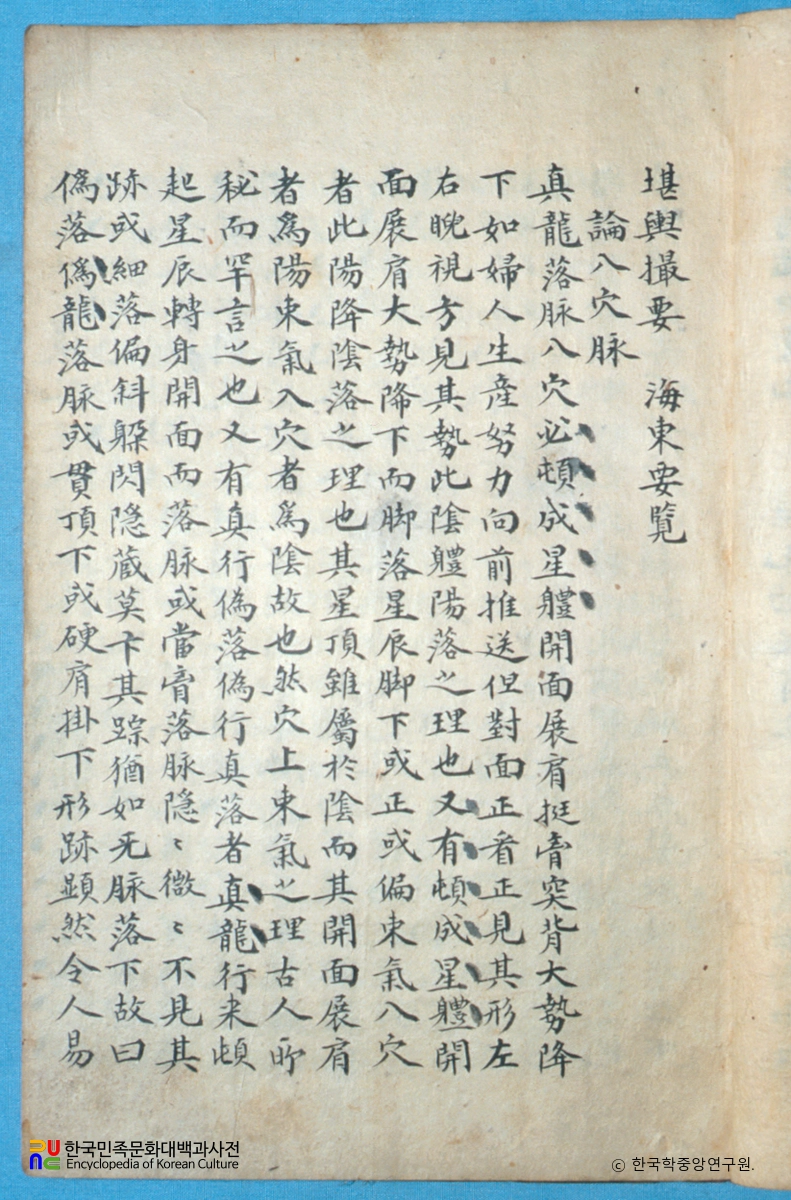 堪輿撮要 海東要覽
論入穴脉
真龍落脉入穴必頓成星軆開面展肩挺膏突背大勢降
下如婦人生産努力向前推送但對面正看正見其形左
右睨視方見其勢此陰軆陽落之理也又有頓成星軆開
面展肩大勢降下而脚落星辰脚下或正或偏束氣入穴
者此陽降陰落之理也其星頂雖屬於陰而其開面展肩
者爲陽束氣入穴者爲陰故也然穴上束氣之理古人所
秘而罕言之也又有真行偽落偽行真落者真龍行来頓
起星辰轉身開面而落脉或當膏落脉隠〻微〻不見其
跡或細落偏斜躱閃隠蔵莫卞其踪猶如无脉落下故曰
偽落偽龍落脉或貫頂下或硬肩掛下形跡顯然令人易
한국민족문화대백과사전
Encyclopedia of Korean Culture
ⓒ 한국학중앙연구원.